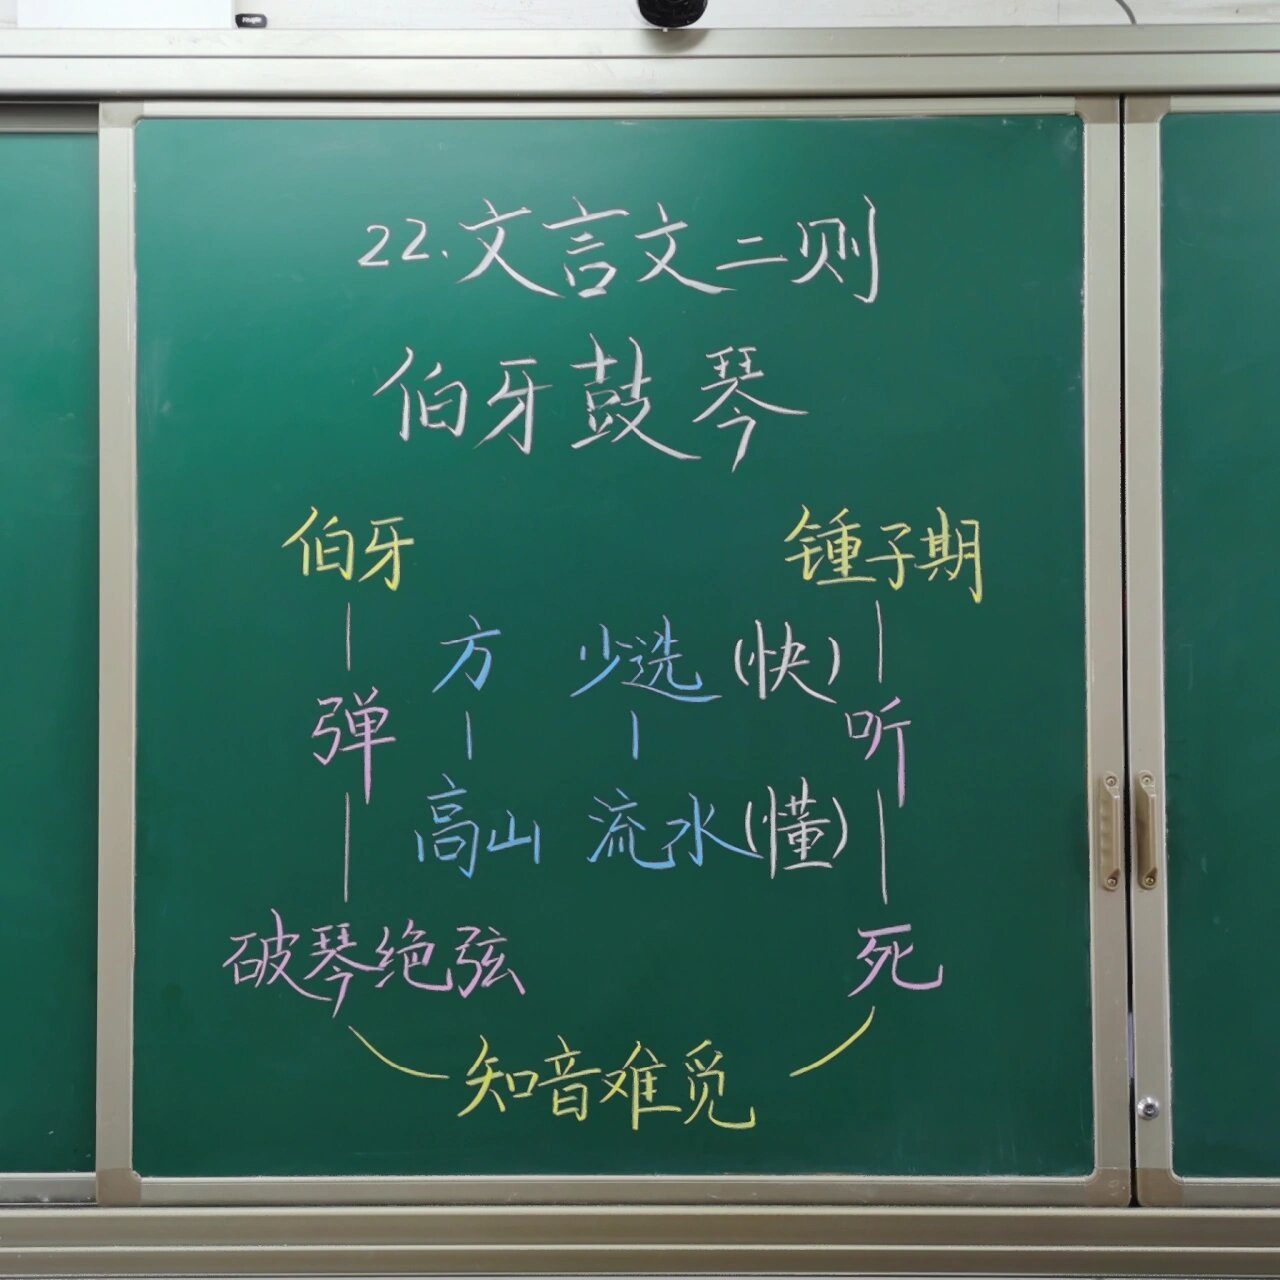 22.文言文二则
伯牙鼓琴
伯牙 锺子期
方 少选(快)
弹 听
高山 流水(懂)
破琴绝弦 死
知音难觅